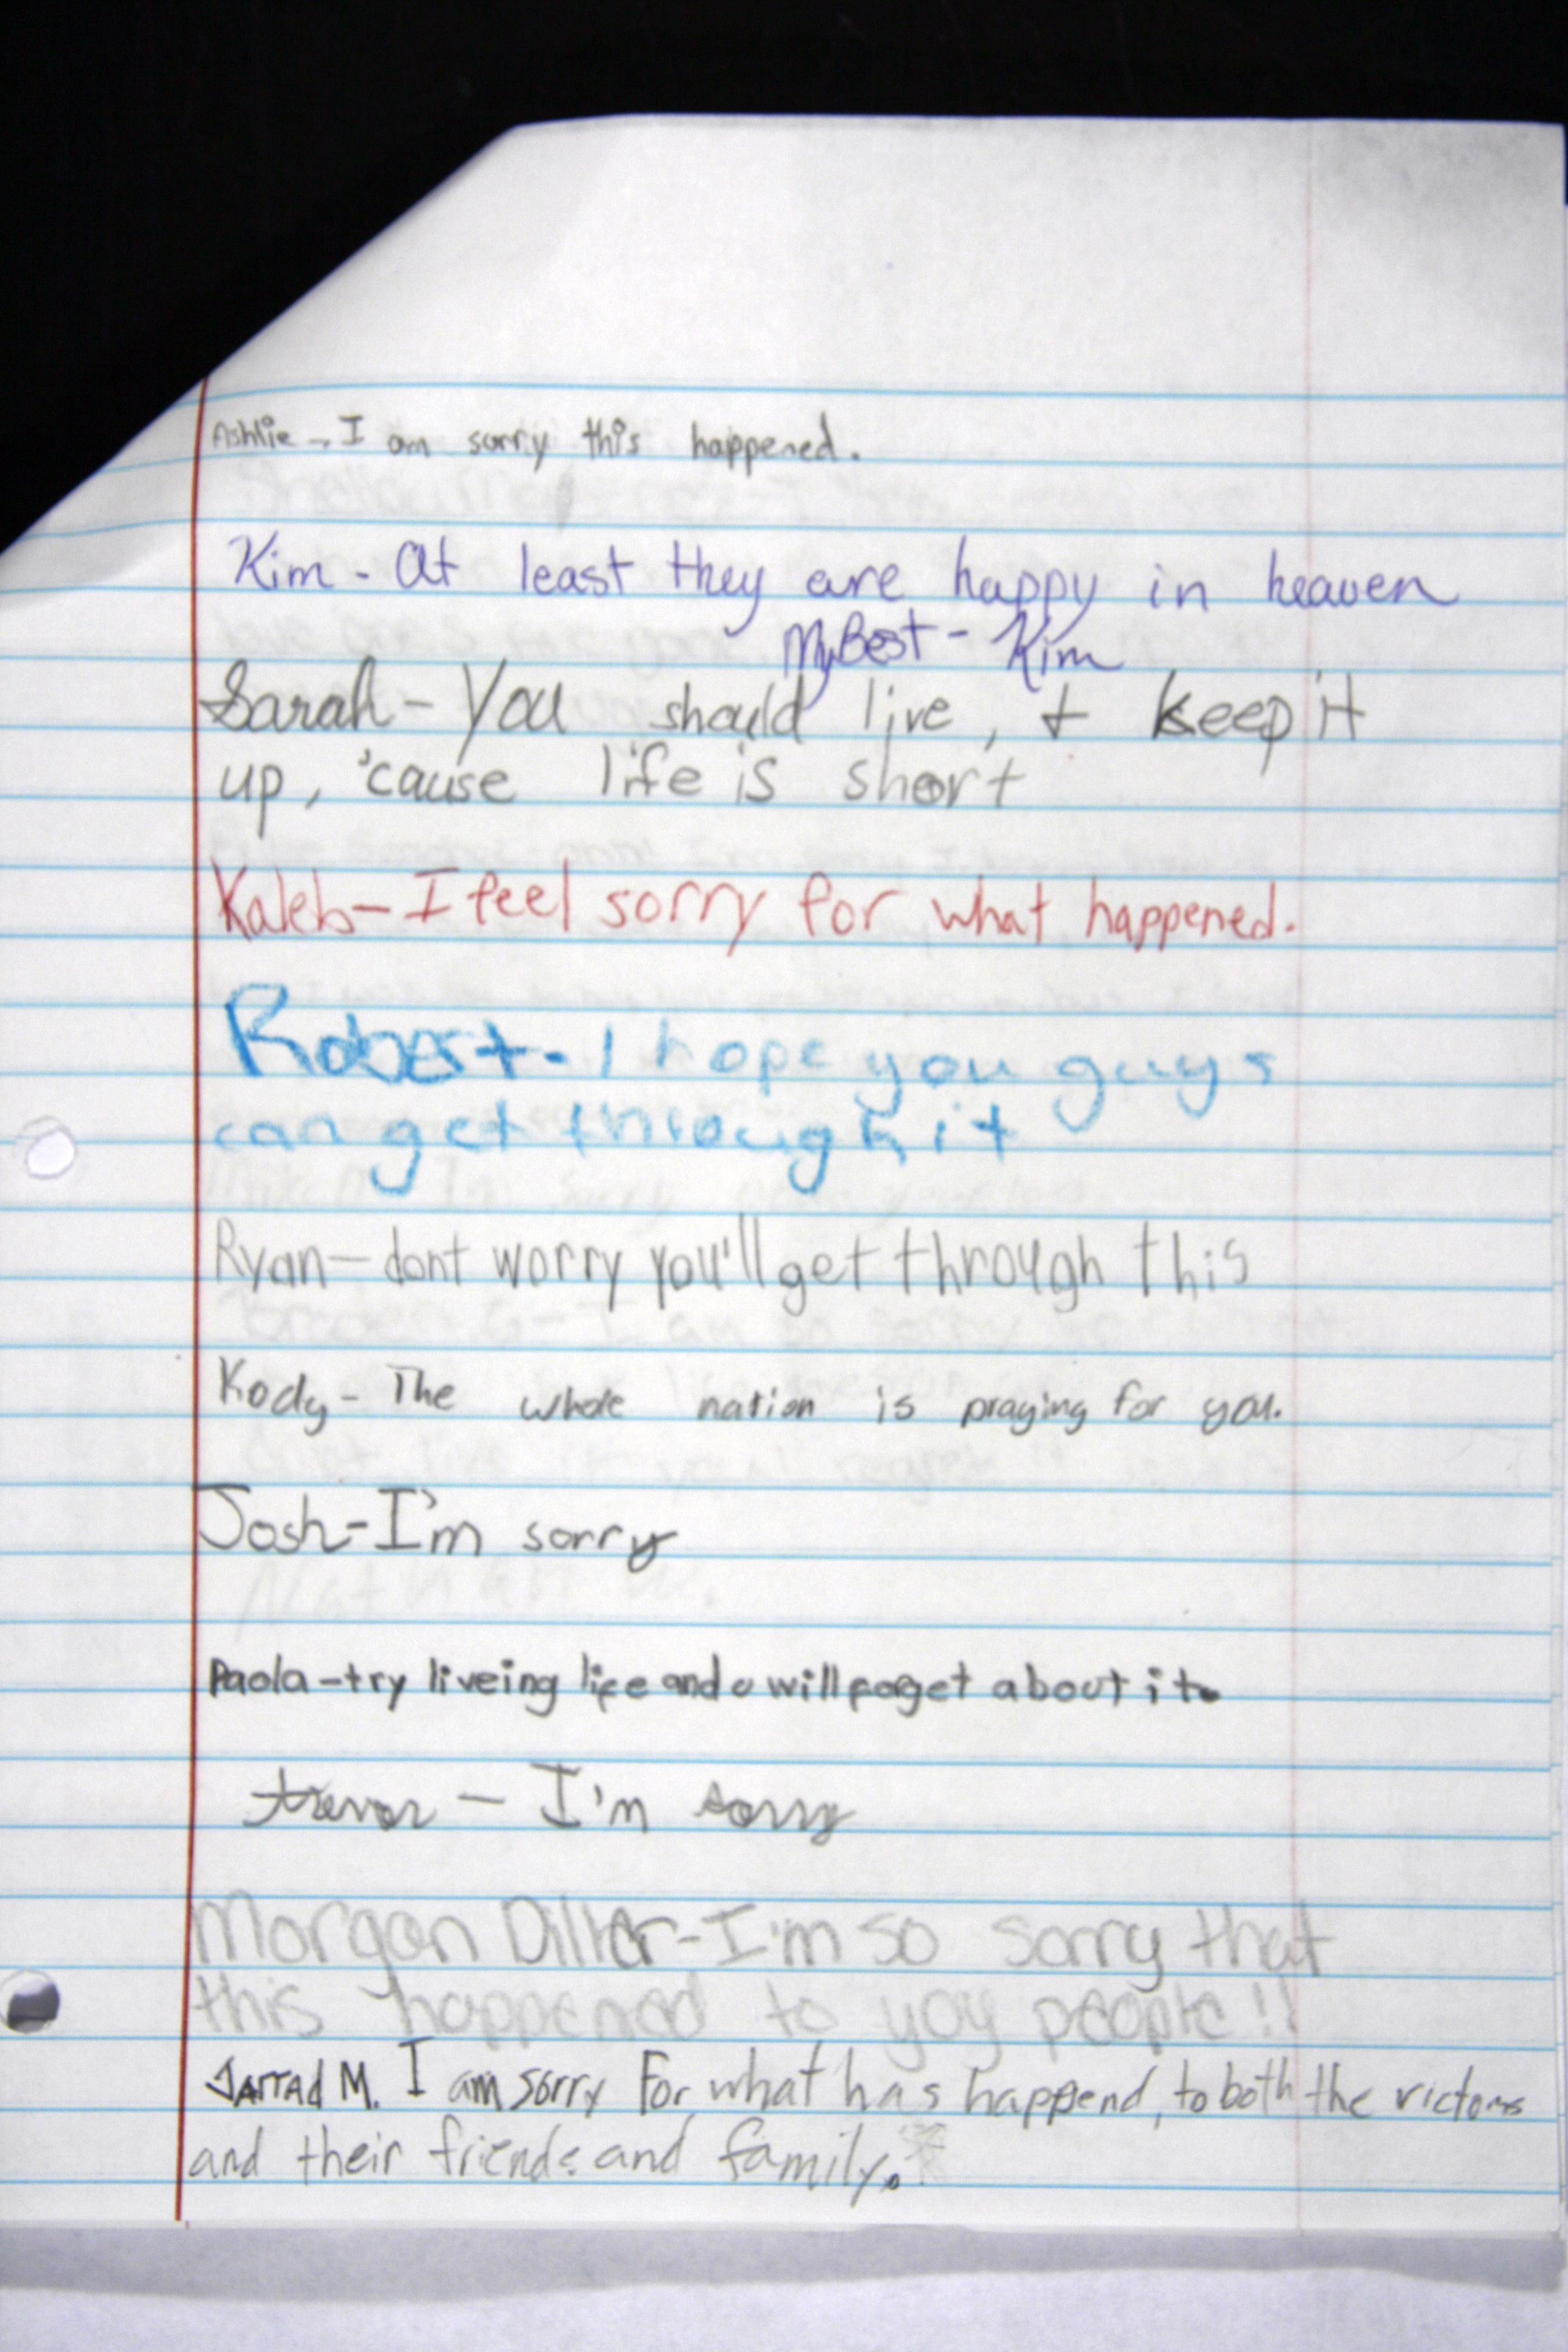 Ashlie - I am sorry this happened.
Kim - At least they are happy in heaven
My Best - Kim
Sarah - You should live, + keep it
up, 'cause life is short
Kaleb - I feel sorry for what happened.
Robert - I hope you guys
can get through it
Ryan - dont worry you'll get through this
Kody - The whole nation is praying for you.
Josh - I'm sorry
Paola - try liveing life and u will forget about it.
trevor - I'm sorry
Morgan - I'm so sorry that
this happened to yoy people!!
Jarrad M. I am sorry For what has happend, to both the victoms
and their friends and family.